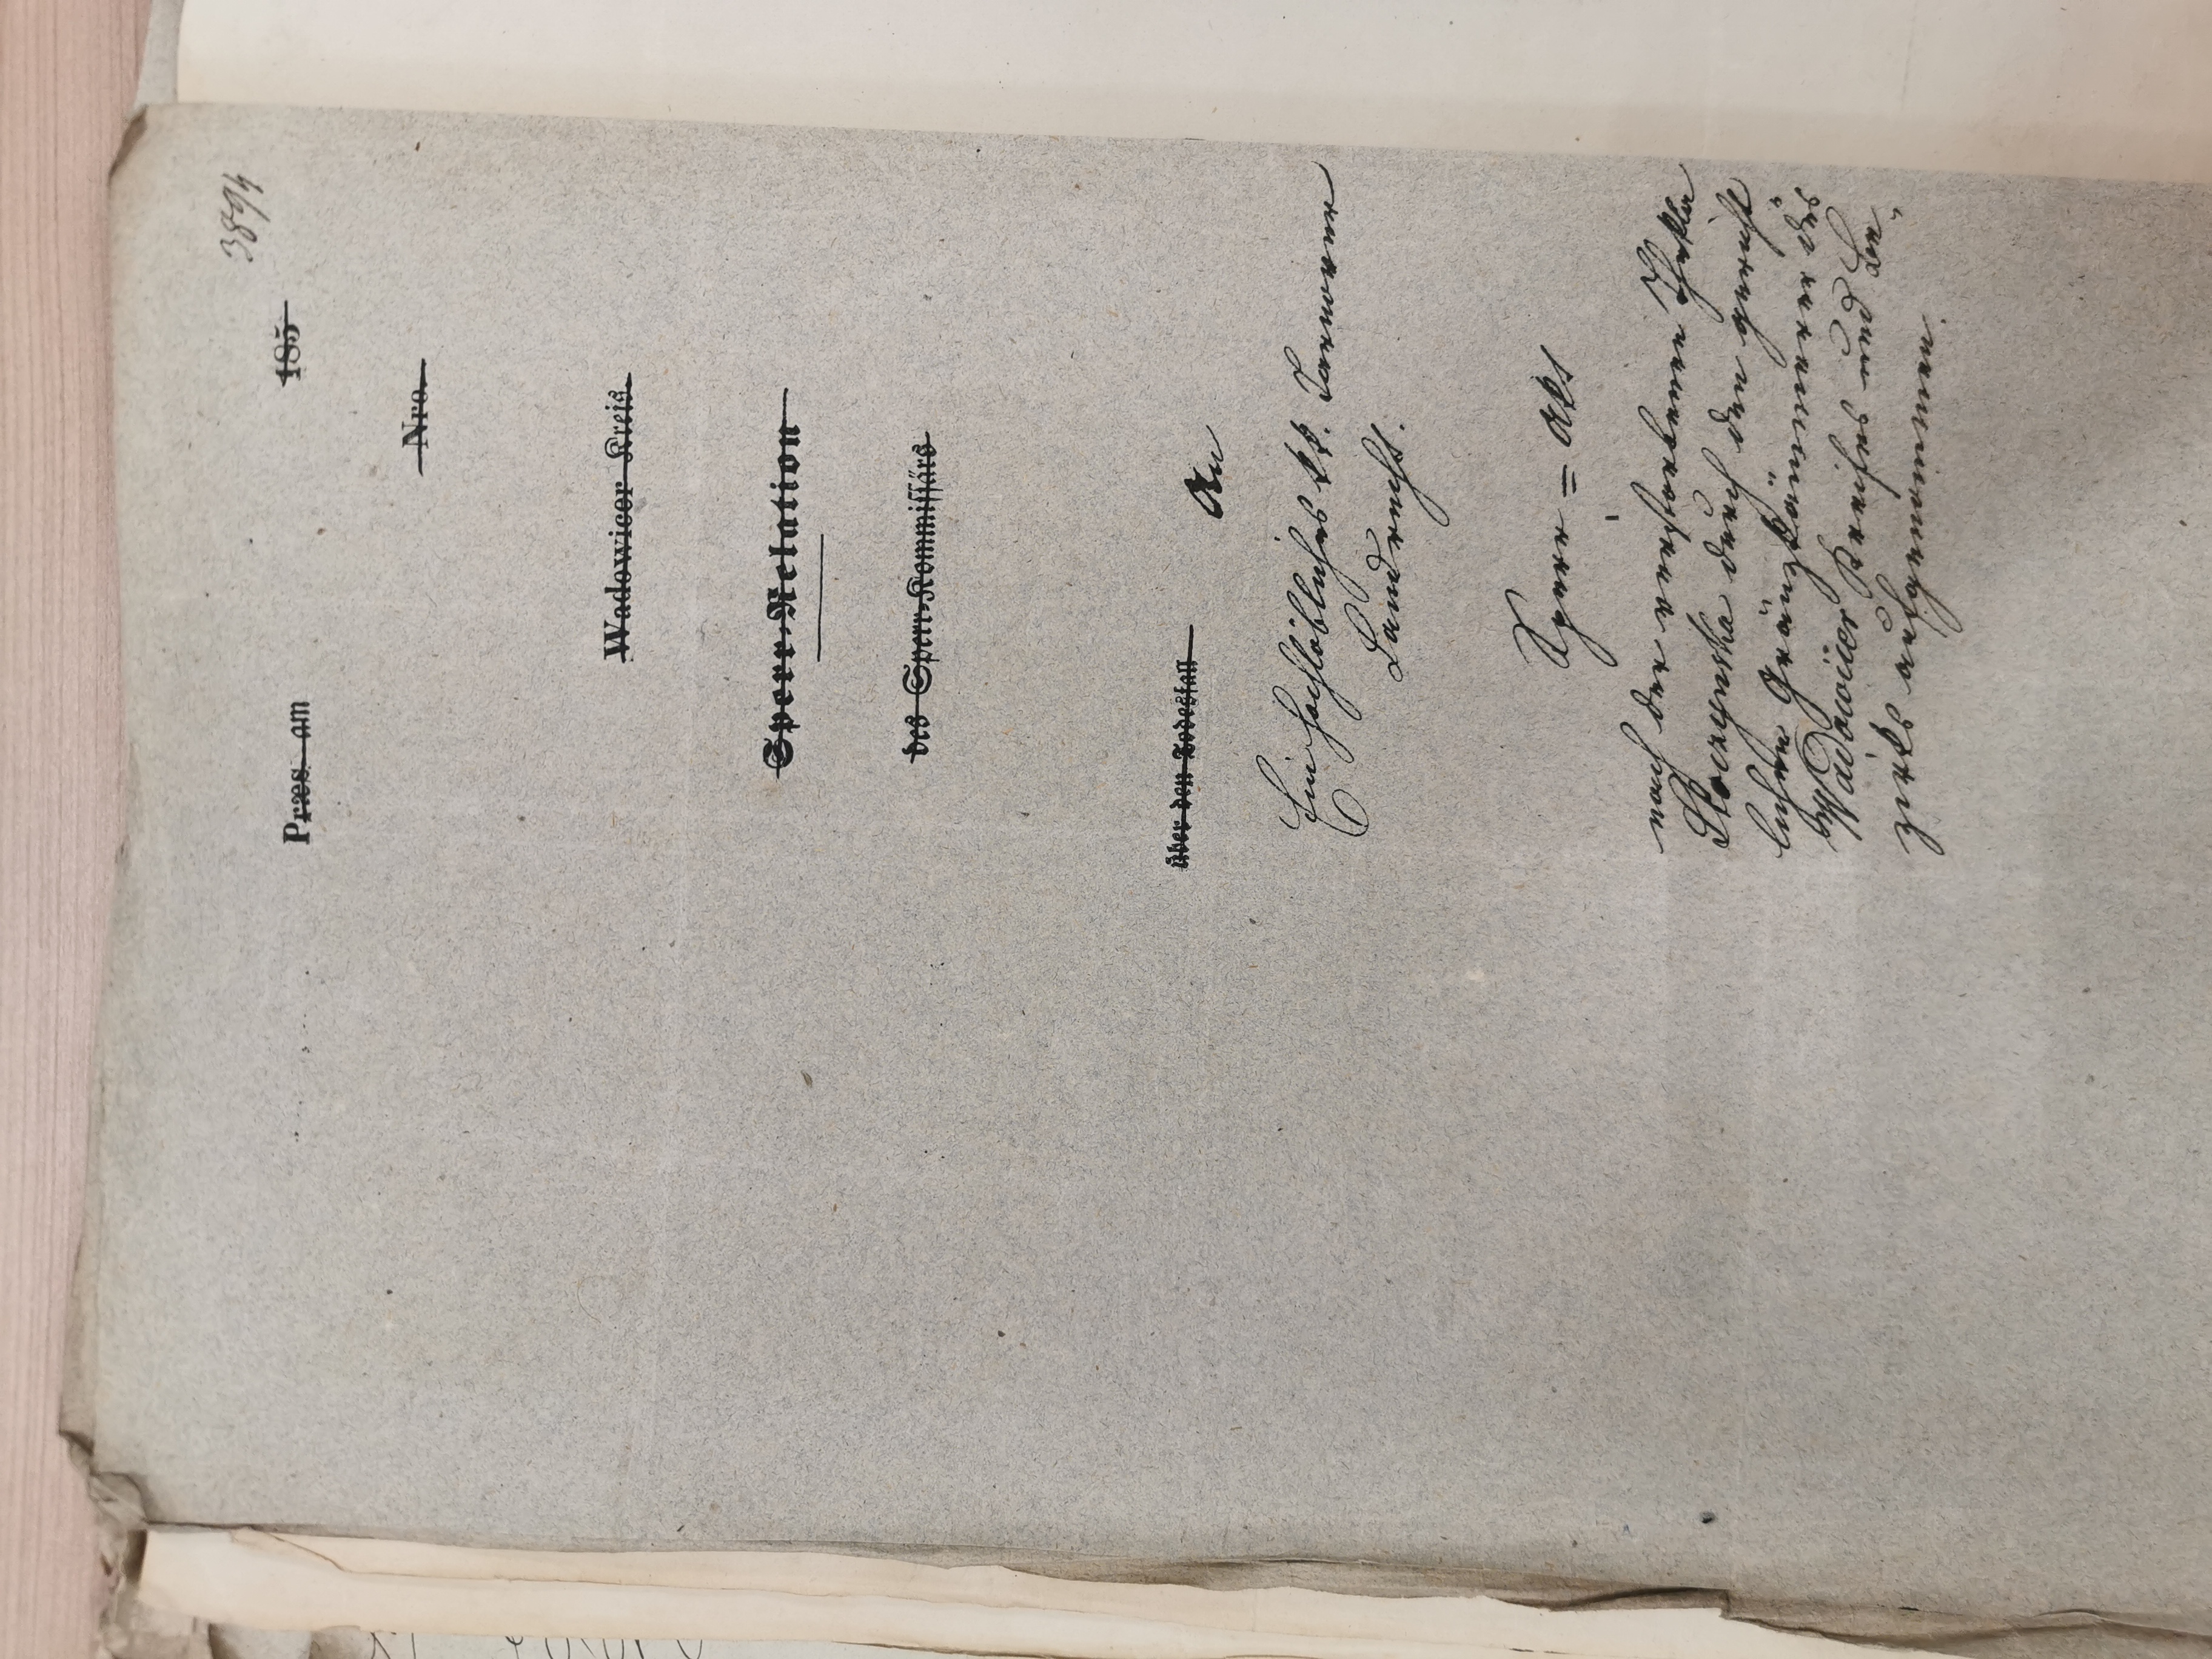 389/4
Præs. am 185
Nro.
Wadowicer Kreis.
Sperr-Relation
des Sperr-Kommissärs
über den Todesfall
An
Ein hochlöbliches kk. Tarnower
Landrecht.
Sperr = Akt
nach der verstorbenen Thekla
Skorzynska durch den gericht
lichen Gränzkämmerer des
Wadowicer Kreises und Be„
zirks aufgenommen.